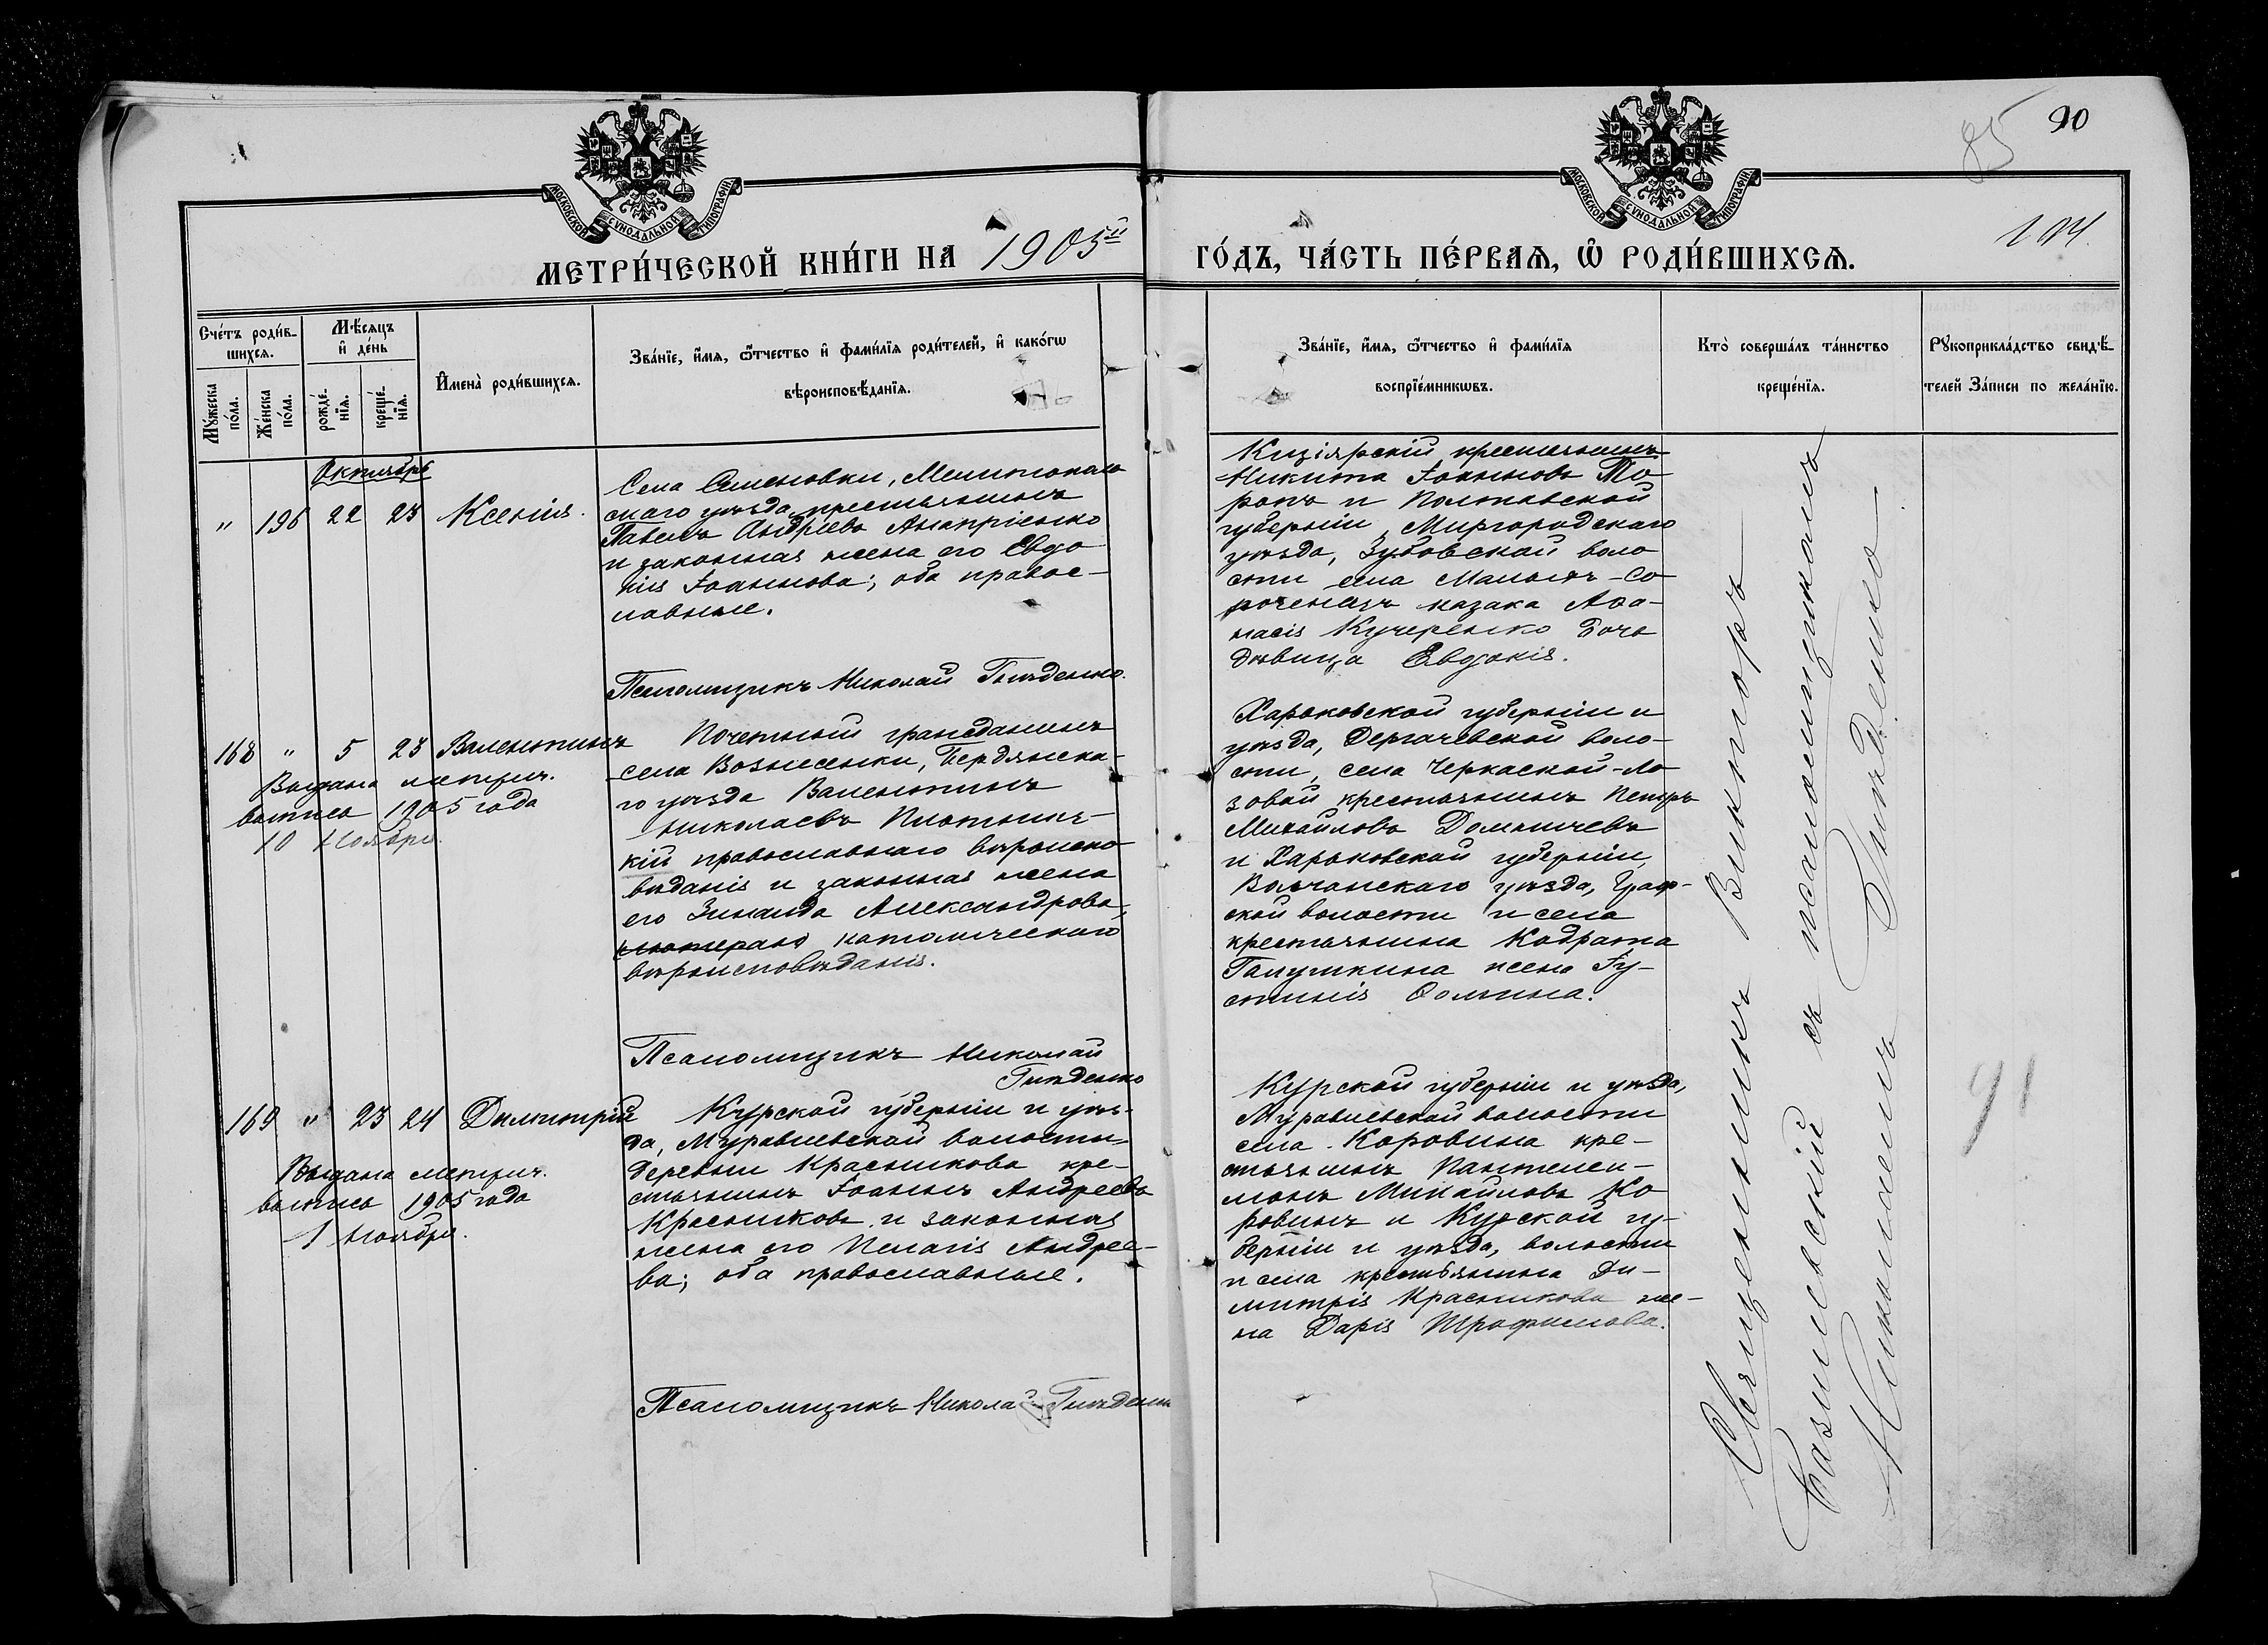 85 90
МОСКОВСКОЙ СѴНОДАЛЬНОЙ ТИПОГРАФІИ
МОСКОВСКОЙ СѴНОДАЛЬНОЙ ТИПОГРАФІИ
194.
МЕТРИ́ЧЕСКОЙ КНИ́ГИ НА 1905й ГО́ДЪ, ЧА́СТЬ ПЕ́РВАѦ, Ѡ҆ РОДИ́ВШИХСѦ.
Сче́тъ роди́в-
шихсѧ.
Мꙋ́жеска по́ла.
Же́нска по́ла.
Мѣ́сѧцъ
и҆ де́нь
рожде́-
нїѧ.
креще́-
нїѧ.
И҆мена̀ роди́вшихсѧ.
Зва́нїе, и҆́мѧ, ѻ҆́тчество и҆ фами́лїѧ роди́телей, и҆ како́гѡ
вѣроисповѣ́данїѧ.
Зва́нїе, и҆́мѧ, ѻ҆́тчество и҆ фами́лїѧ
воспрїе́мникѡвъ.
Кто̀ соверша́лъ та́инство
креще́нїѧ.
Рꙋкоприкла́дство свидѣ́-
телей За́писи по жела́нїю.
Октябрь
" 196 22 23 Ксенія.
Села Семеновки, Мелитополь
скаго уѣзда крестьянинъ
Павелъ Андреевъ
и законная жена его Евдо
кія Іоаннова; оба правос-
лавные.
Псаломщикъ Николай Гнѣденко.
Кизіярскій крестьянинъ
Никита Іоанновъ Мо-
розъ и Полтавской
губерніи, Миргородскаго
уѣзда, Зубовской воло
сти села Малыхъ-Со
рочинецъ казака Аѳа-
насія Кучеренко дочь
дѣвица Евдокія.
168 " 5 23 Валентинъ
Выдана метрич.
выпись 1905 года
10 Ноября.
Почетный гражданинъ
села Вознесенки, Бердянска-
го уѣзда Валентинъ
Николаевъ
кій православнаго вѣроиспо
вѣданія и законная жена
его Зинаида Александрова,
католическаго
вѣроисповѣданія.
Псаломщикъ Николай
Гнѣденко
Харьковской губерніи и
уѣзда, Дергачевской воло-
сти, села Черкаской-Ло
зовой крестьянинъ Петръ
Михайловъ
и Харьковской губерніи,
Волчанскаго уѣзда, Граф-
ской волости и села
крестьянина Кодрата
Галушкина жена Іу-
стинія Ѳомина.
169 " 23 24 Димитрій
Выдана метрич.
выпись 1905 года
1 Ноября.
Курской губерніи и уѣз-
да, Муравлевской волости
деревни Красникова кре-
стьянинъ Іоаннъ Андреевъ
Красниковъ и законная
жена его Пелагія Андрее-
ва; оба православные.
Псаломщикъ Николай Гнѣденко
Курской губерніи и уѣзда,
Муравлевской волости
села Коровина кре-
стьянинъ Пантелеи-
монъ Михайловъ Ко
ровинъ и Курской гу-
берніи и уѣзда, волости
и села крестьянина Ди-
митрія Красникова же-
на Дарія Трофимова.
Священникъ Викторъ
Базилевскій съ псаломщикомъ
Николаемъ Гнѣденко
91